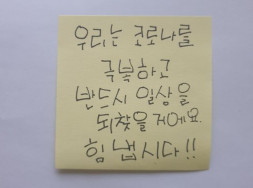 우리는 코로나를
극복하고
반드시 일상을
되찾을 거에요.
힘 냅시다!!